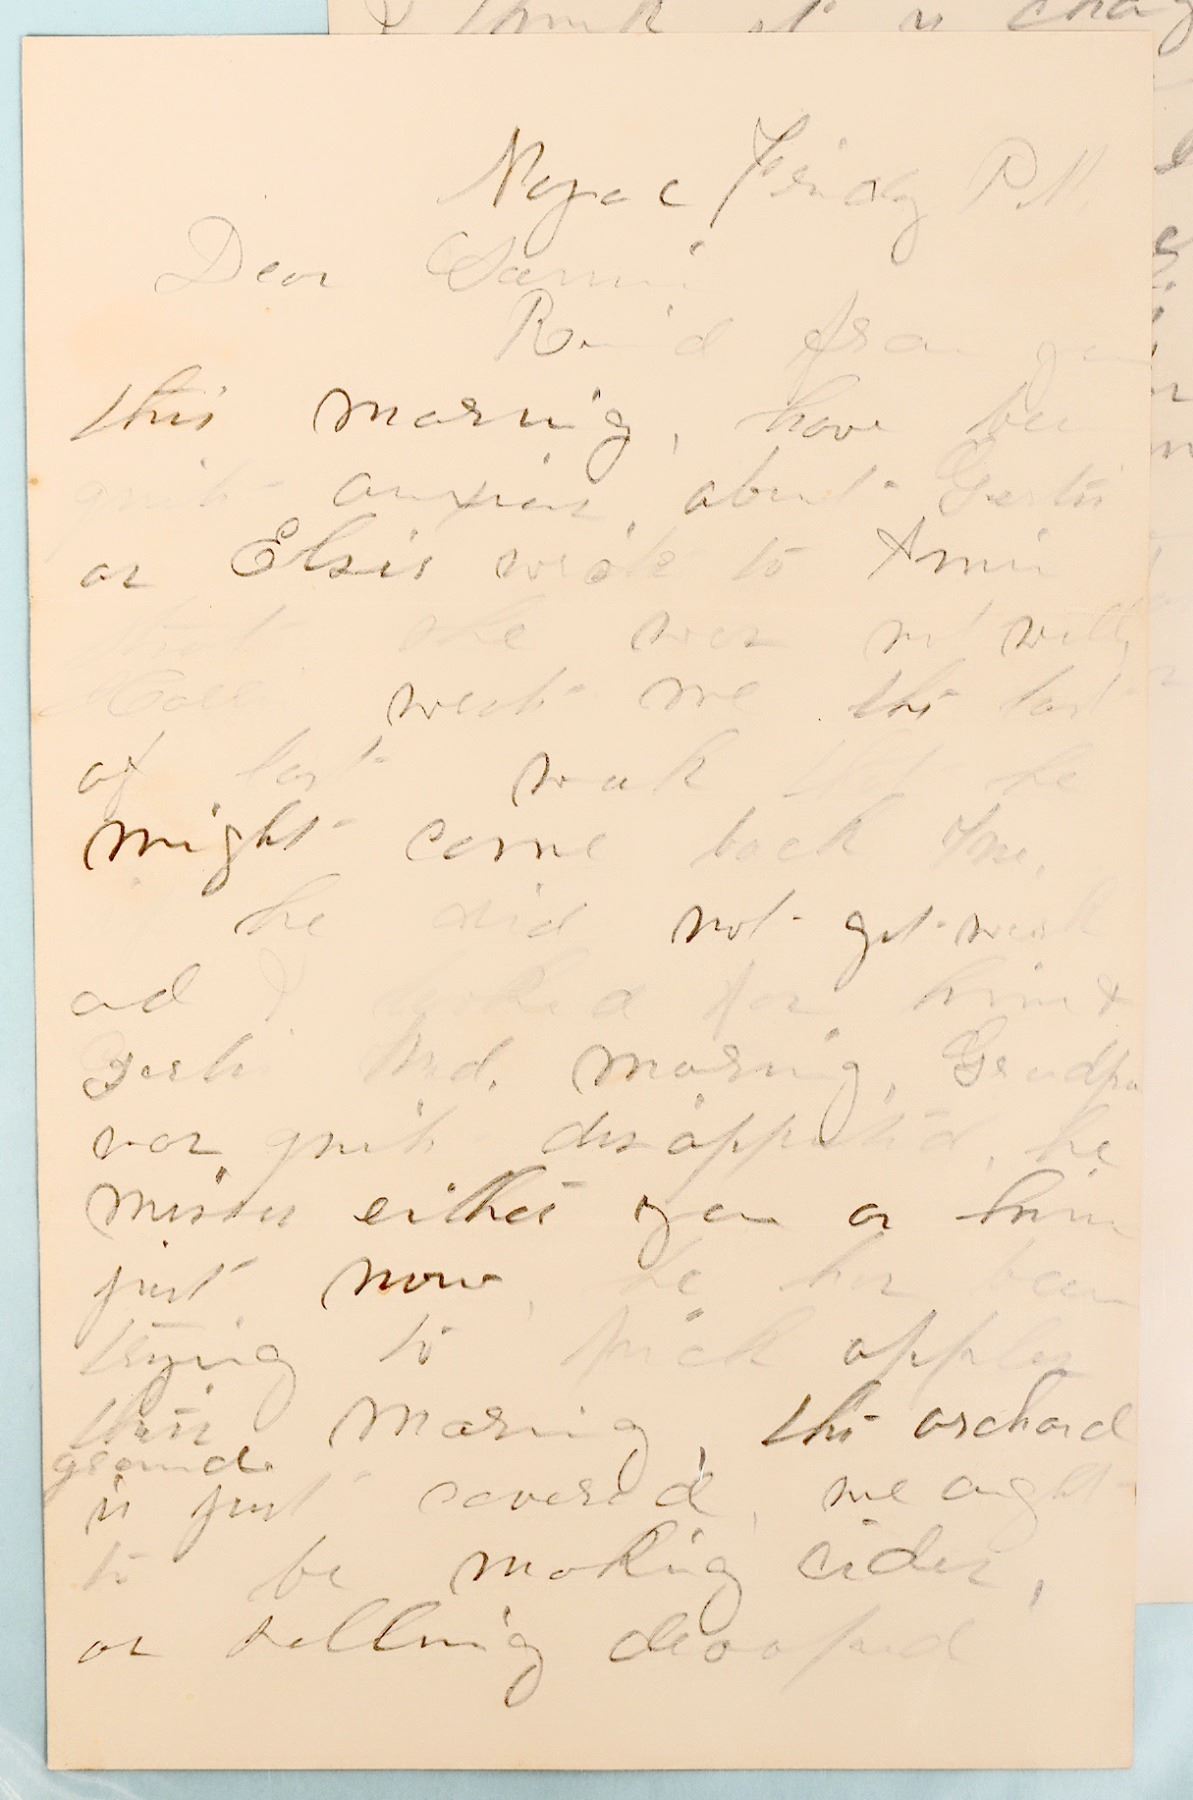 I think it is chang
Nyac Friday P.M.
Dear Sammi
Rec'd from you
this morning, have been
quite anxious, about Gertie
as Elsie wrote to Amie
that she was not well,
wrote me the last
of last week that he
might come back Tue.
if he did not get work
and I looked for him &
Gertie Wed. morning, Grandpa
was quite disappointed, he
misses either you or him
just now, he has been
trying to pick apples
this morning, the orchard
ground
is just covered, we ought
to be making cider,
or selling dropped